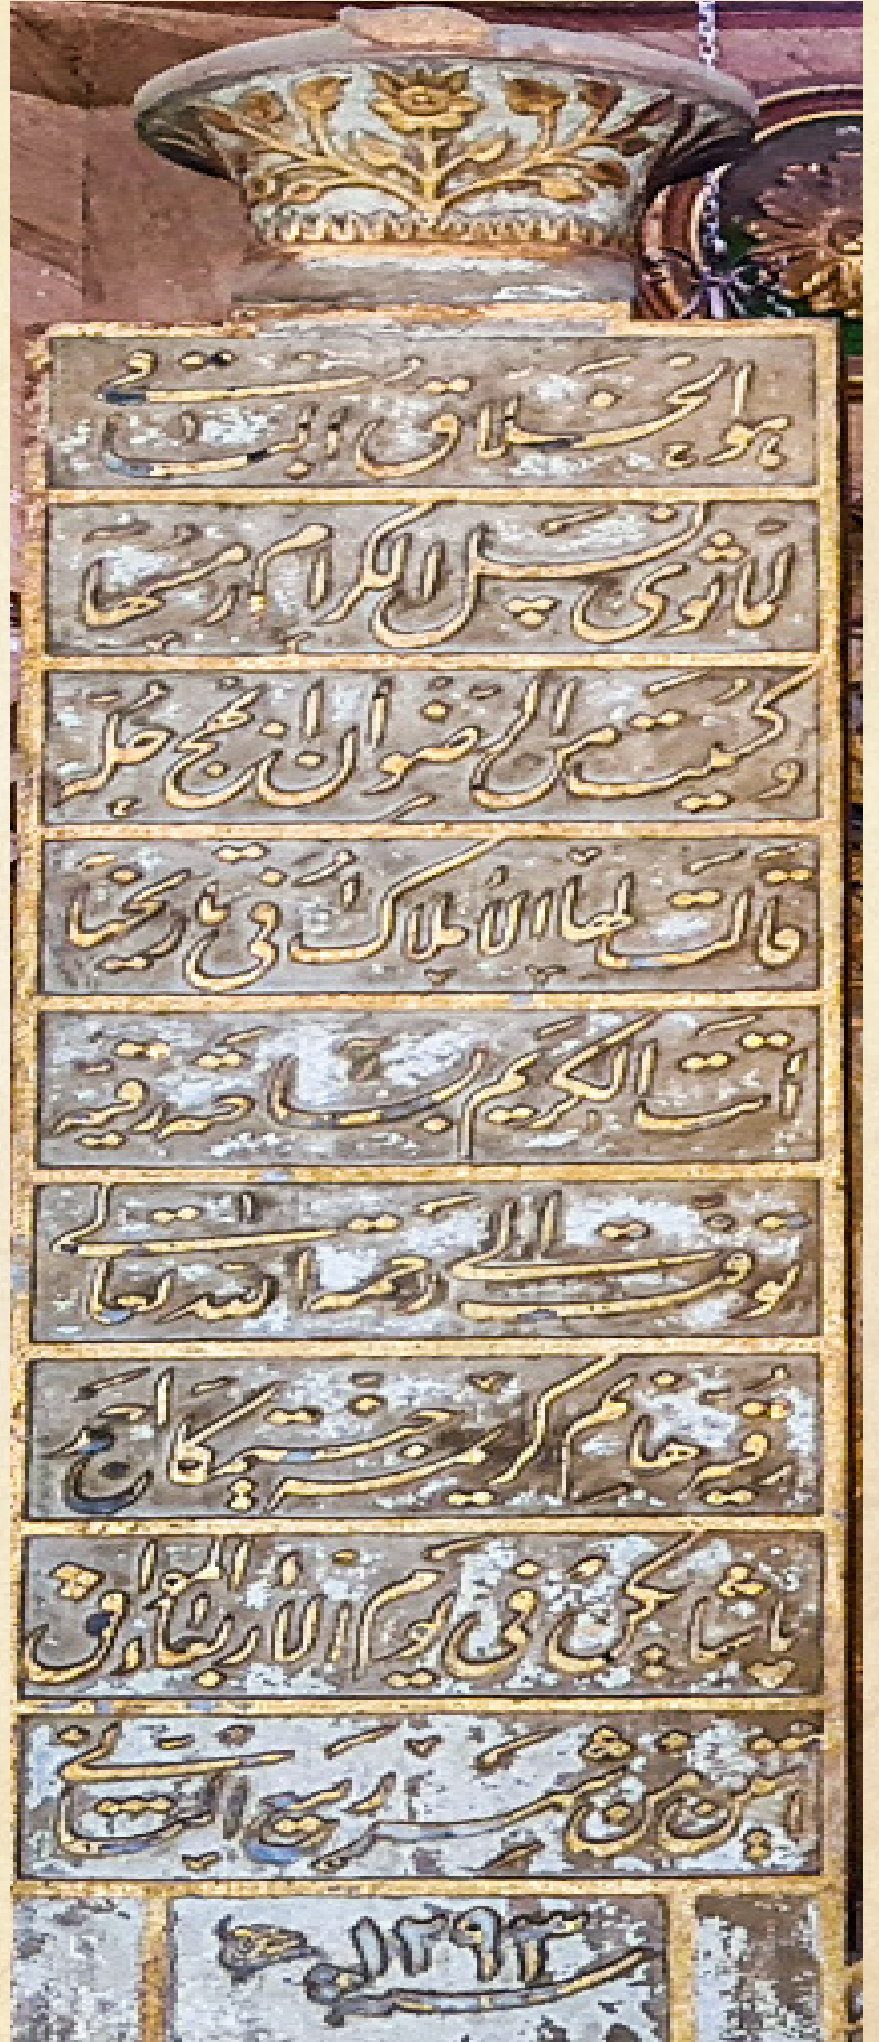 هو الخلاق الباقي
لما ثوى نسل الكرام رمسها
وكسيت من الرضوان أبهج حله
قالت لها الأملاك في تاريخها
أتت الكريم بساحة رقيه
توفت إلى رحمة الله تعالى
رقيه هانم كريمة أحمد
باشا يكن في يوم الأربعاء الموافق
اثنين من شهر ربيع الثاني
سنة ١٢٩٣